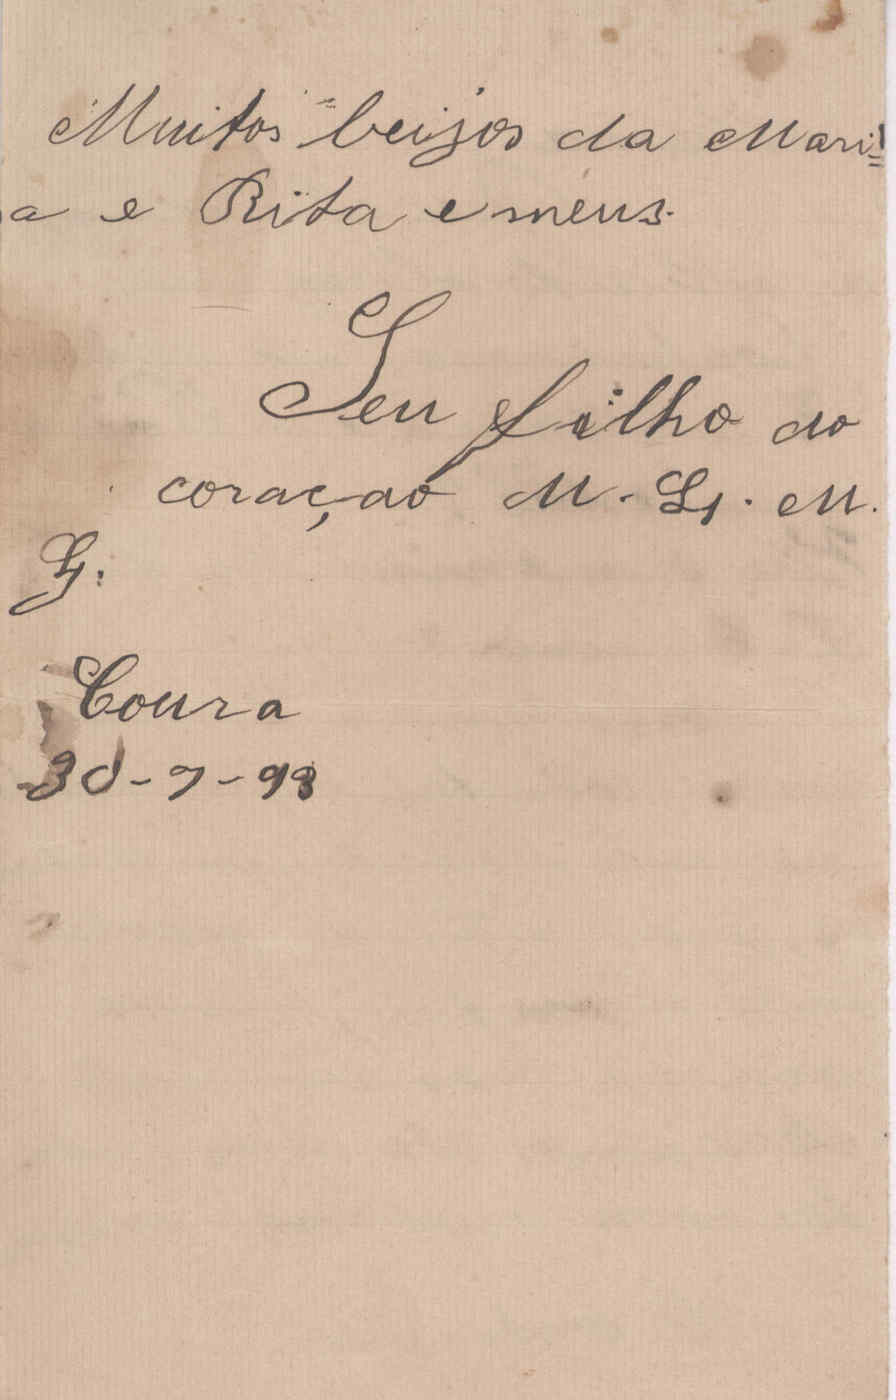 Muitos beijos da Mari=
a e Rita e meus.
Seu filho do
coração M. G. M.
G.
Coura
30-7-93